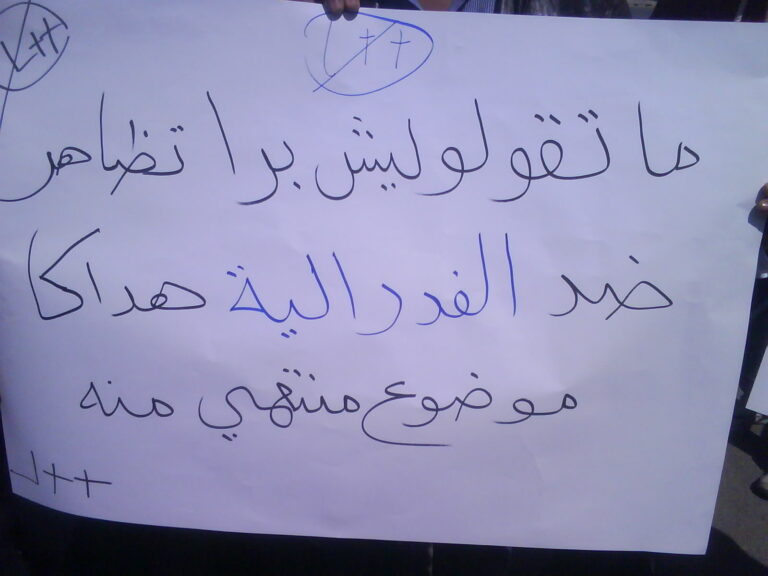 L++
L++
ما تقولوليش برا تظاهر
ضد الفدرالية هداكا
موضوع منتهي منه
L++